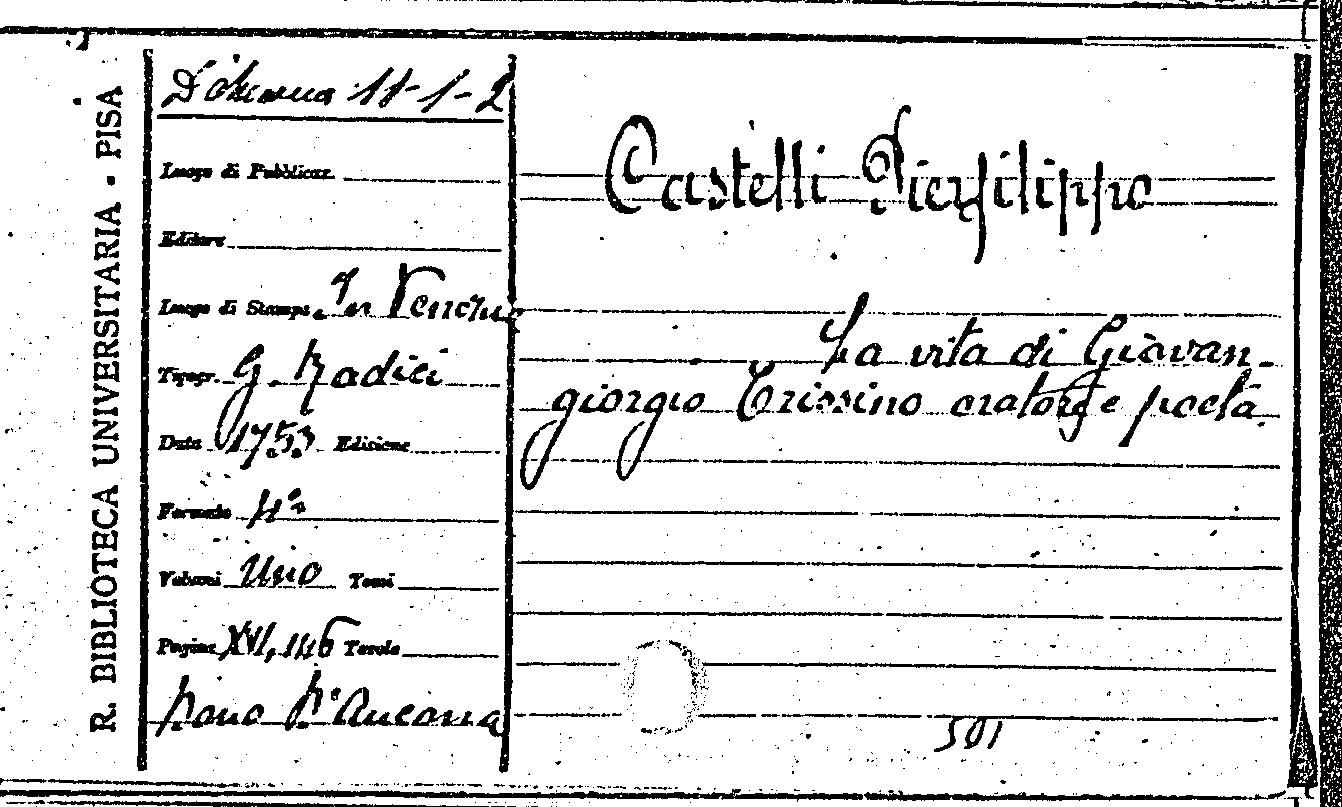 R. BIBLIOTECA UNIVERSITARIA - PISA
D'Ancona 11-1-2
Luogo di Pubblicaz.
Editore
Luogo di Stampa In Venezia
Tipogr. G. Radici
Data 1753 Edizione
Formato 4º
Volumi Uno Tomi
Pagine XVI, 116 Tavole
Dono D'Ancona
Castelli Pierfilippo
La vita di Giovan-
giorgio Trissino oratore e poeta.
501